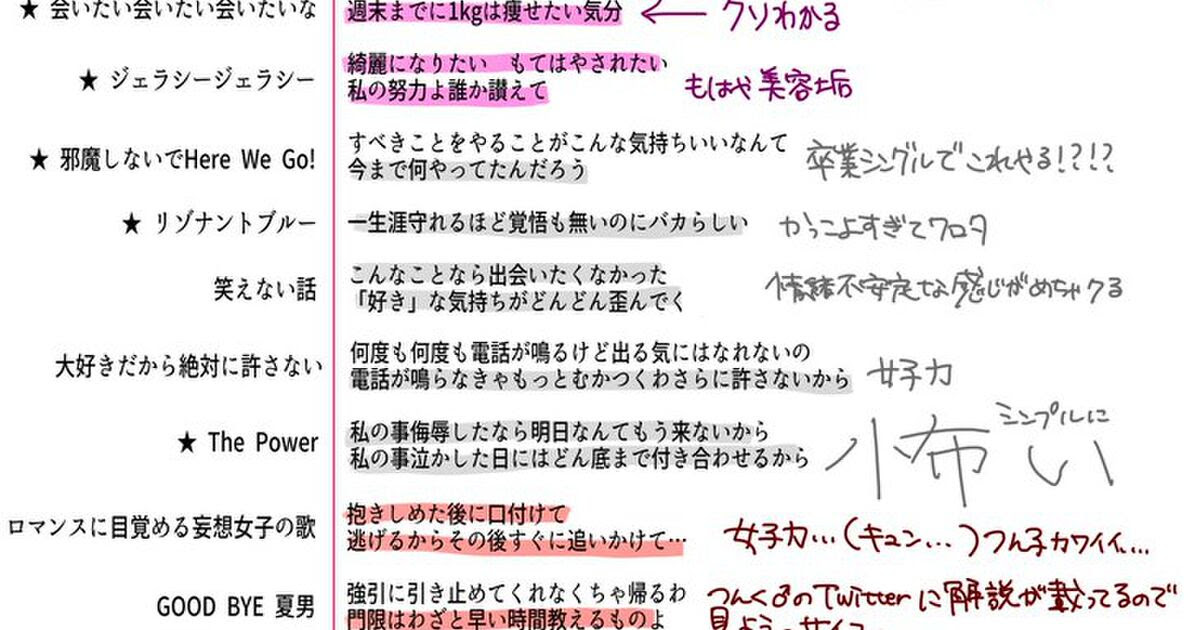 ★ 会いたい会いたい会いたいな
週末までに1kgは痩せたい気分
← クソわかる
★ ジェラシージェラシー
綺麗になりたい もてはやされたい
私の努力よ誰か讃えて
もはや美容垢
★ 邪魔しないでHere We Go!
すべきことをやることがこんな気持ちいいなんて
今まで何やってたんだろう
卒業シングルでこれやる!?!?
★ リゾナントブルー
一生涯守れるほど覚悟も無いのにバカらしい
かっこよすぎてワロタ
笑えない話
こんなことなら出会いたくなかった
「好き」な気持ちがどんどん歪んでく
情緒不安定な感じがめちゃクる
大好きだから絶対に許さない
何度も何度も電話が鳴るけど出る気にはなれないの
電話が鳴らなきゃもっとむかつくわさらに許さないから
女子力
★ The Power
私の事侮辱したなら明日なんてもう来ないから
私の事泣かした日にはどん底まで付き合わせるから
シンプルに
怖い
ロマンスに目覚める妄想女子の歌
抱きしめた後に口付けて
逃げるからその後すぐに追いかけて…
女子力…(キュン…)つん子カワイイ…
GOOD BYE 夏男
強引に引き止めてくれなくちゃ帰るわ
門限はわざと早い時間教えるものよ
つんく♂のTwitterに解説が載ってるので